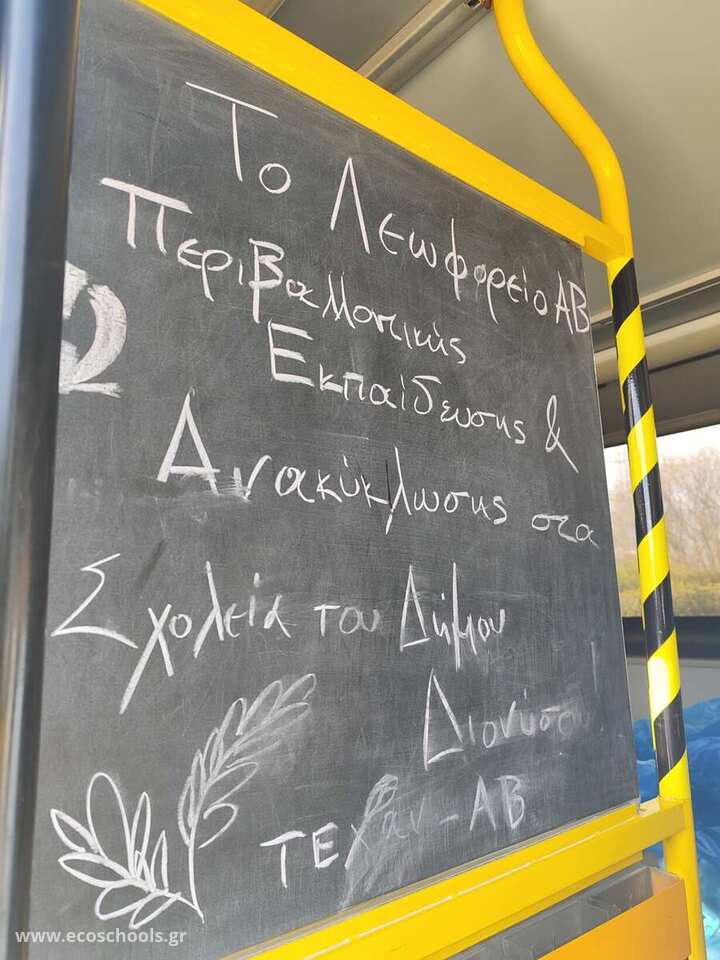 Το Λεωφορείο ΑΒ
Περιβαλλοντικής
Εκπαίδευσης &
Ανακύκλωσης στα
Σχολεία του Δήμου
Διονύσου
τεχαν-ΑΒ
www.ecoschools.gr